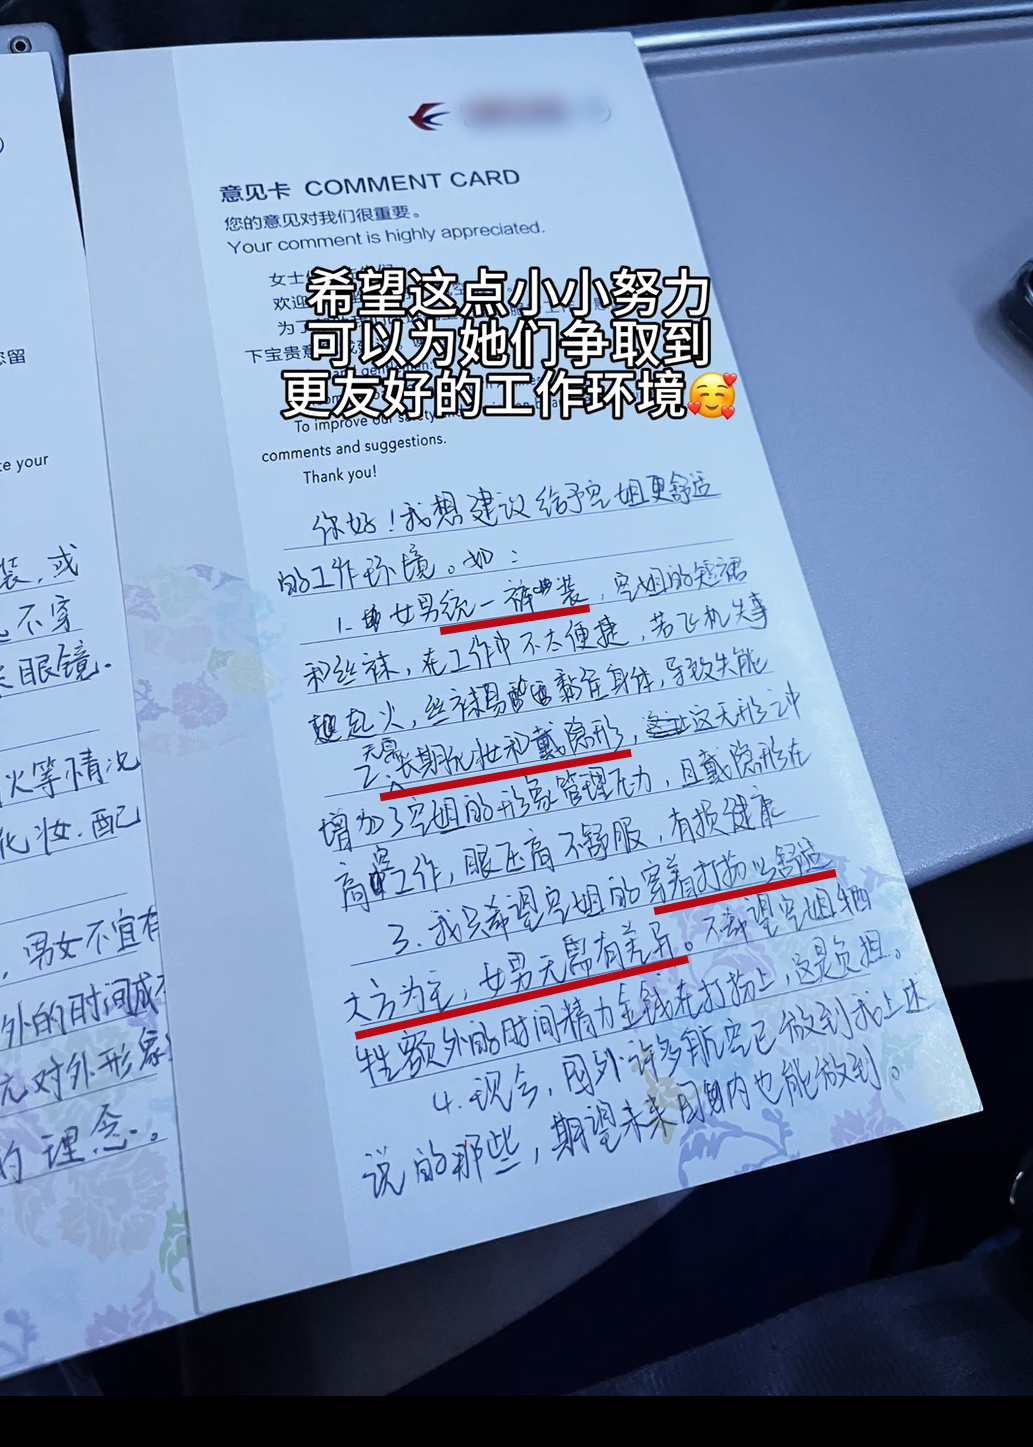 意见卡 COMMENT CARD
您的意见对我们很重要。
Your comment is highly appreciated.
女士
欢迎
为了
下宝贵意
希望这点小小努力
可以为她们争取到
更友好的工作环境🥰
and gentlemen:
To improve our safety
comments and suggestions.
Thank you!
你好！我想建议给予空姐更舒适
的工作环境。如：
1. 女男统一裤装，空姐的短裙
和丝袜，在工作中不太便捷，若飞机失事
起火，丝袜易黏住身体，导致失能
2. 无需长期化妆和戴隐形，这无形之中
增加了空姐的形象管理压力，且戴隐形在
高空工作，眼压高不舒服，有损健康
3. 我只希望空姐的穿着打扮以舒适
大方为主，女男无需有差异。不希望空姐牺
牲额外的时间精力金钱在打扮上，这是负担。
4. 现今，国外许多航空已做到我上述
说的那些，期望未来国内也能做到。
您留
te your
装，或
不穿
眼镜.
火等情况
化妆.配
，男女不宜有
外的时间成
对外形象
的理念。